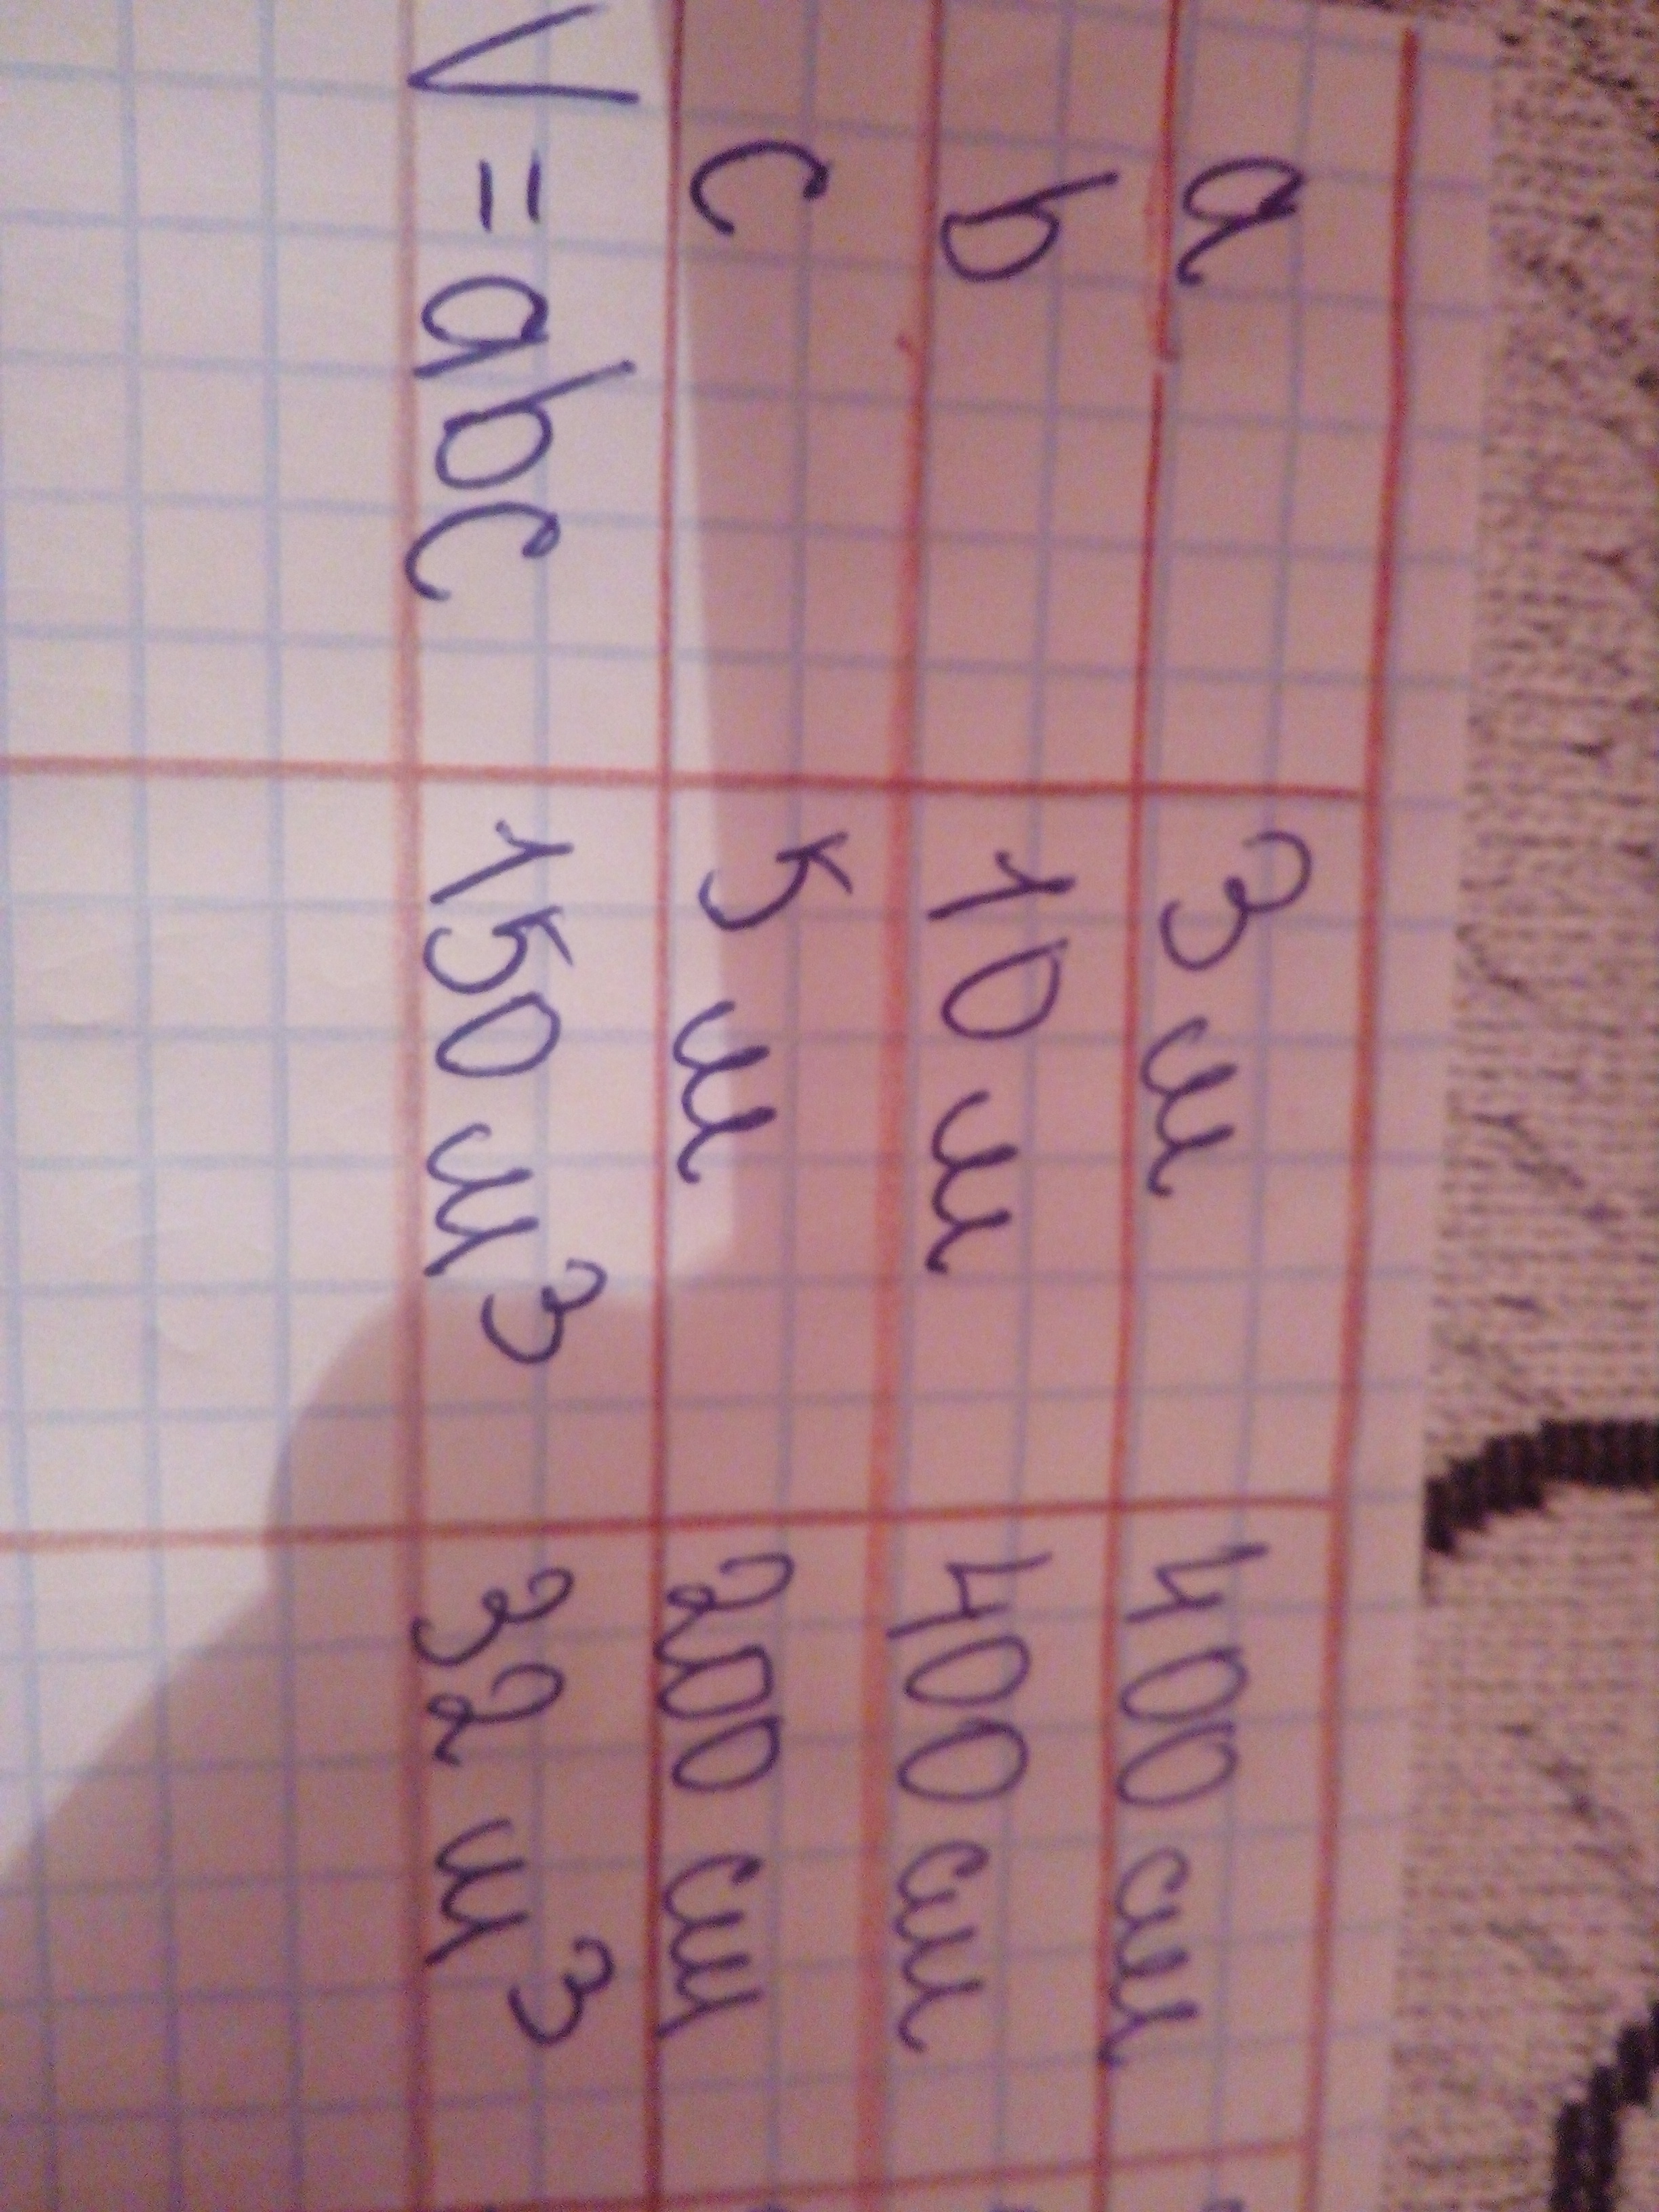 a 3 м 400 см
b 10 м 400 см
c 5 м 200 см
V = abc 150 м³ 32 м³